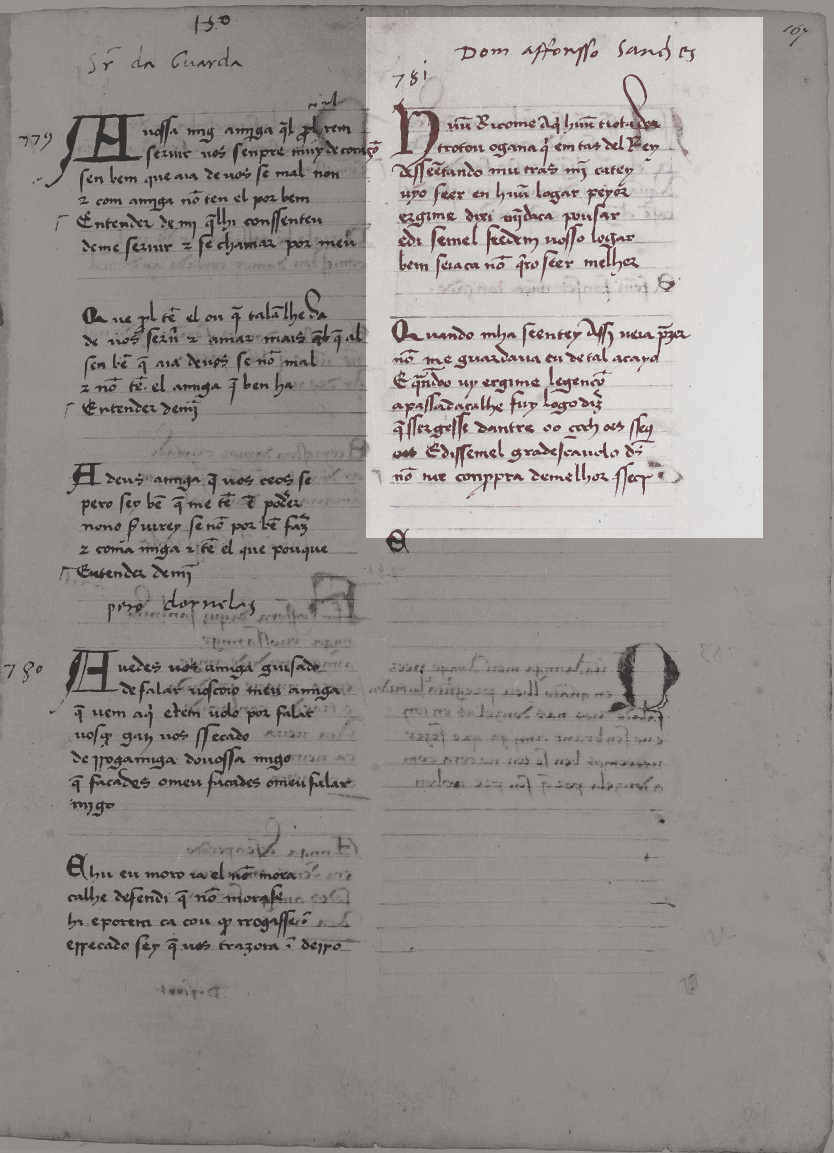 150
Sr da Guarda
779
A uossa mig amiga q̄l prol tem
seruir uos senpre muy de coraçõ
sen bem que aia de uos se mal non
z com amiga nõ ten el por bem
Entender de mi q̄lhi conssenteu
deme seruir z se chamar por meu
Que prol tē el ou q̄ talā lhe da
de uos seruir z amar mais q̄ al
sen bē q̄ aia deuos se nõ mal
z nõ tē el amiga q̄ ben ha
Entender demi
A deus amiga q̄ nos ceos se
pero sey bē q̄ me tē ē poder
nono seruirey se nõ por bē faz
z comā miga z tē el que pouque
Entender demi
pero dornelas
780
Auedes uos amiga guisado
de falar uoscoio meu amigo
q̄ uem aq̄ e tem uolo por falar
uosq̄ ssecado
de rroga miga do uossa migo
q̄ facades omeu facades omeu falar
migo
E hu eu moro ia el nõ mora
calhe defendi q̄ nõ morasse
hi eporem ca cou q̄ rrogasse
e pecado sey q̄ uos
167
Dom affonsso Sanches
781
Nuū Ricome Aq̄ huū trotador
trotou ogana q̄ em cas del Rey
assētando mu tras mi catey
uyo seer en huū logar peyor
ergime dixi uijdaca pousar
e di semel seedem uosso logar
bem seiaca nõ q̄ro seer melhor
Quando mha seentey Assi ueia prazer
nõ me guardaua eu de tal acayõ
E quādoo uy ergime legencõ
apassadacalhe fuy logo diz
q̄ ssergesse dantre oo cochoes seq̄
E dissemel gradescauolo ds
nõ me conppra demelhor
E